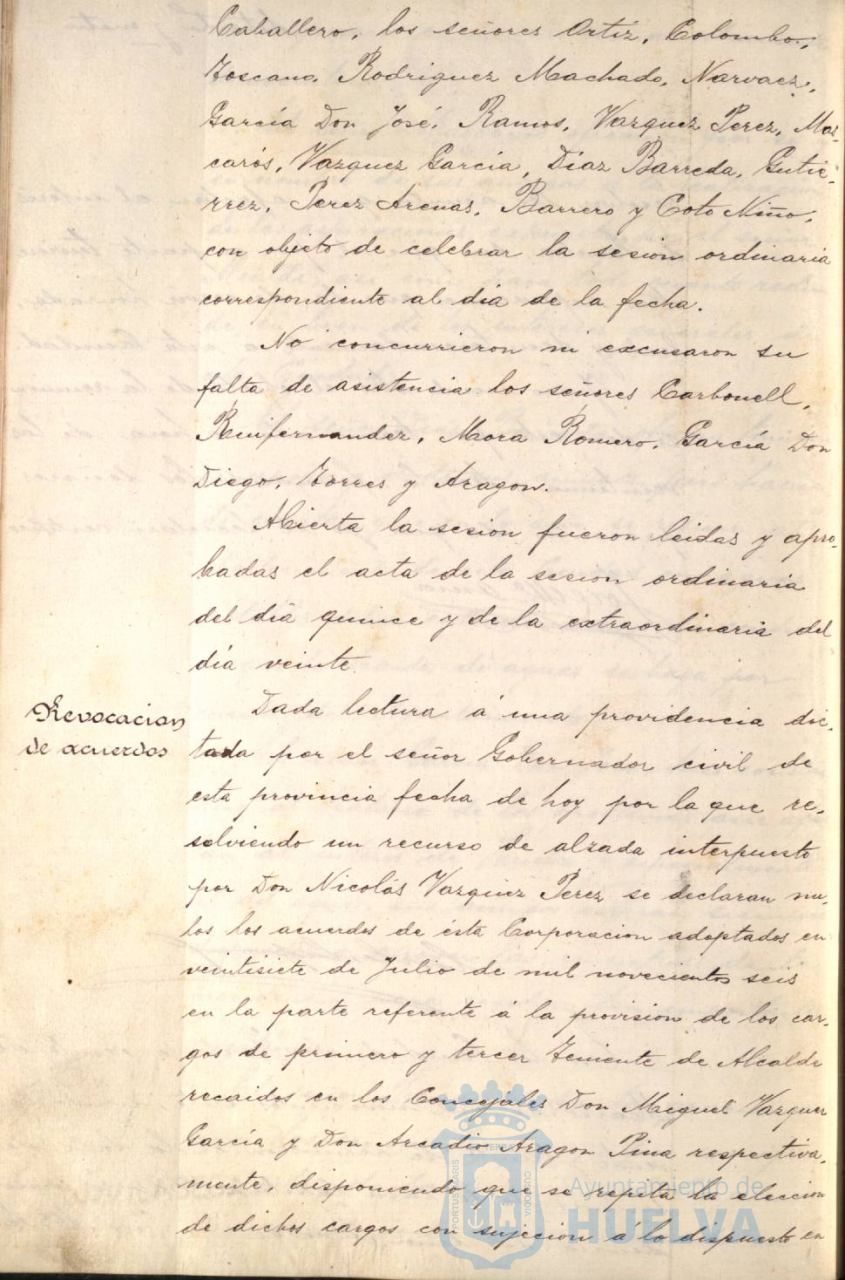 Caballero, los señores Ortíz, Colombo,
Toscano, Rodriguez Machado, Narvaez,
García Don José, Ramos, Vazquez Perez, Mas-
carós, Vazquez García, Díaz Barreda, Gutie-
rrez, Perez Arenas, Barrero y Coto Niño,
con objeto de celebrar la sesion ordinaria
correspondiente al día de la fecha.
No concurrieron ni excusaron su
falta de asistencia los señores Carbonell,
Ruifernandez, Mora Romero, García Don
Diego, Torres y Aragon.
Abierta la sesion fueron leidas y apro-
badas el acta de la sesion ordinaria
del día quince y de la extraordinaria del
día veinte.
Revocacion
de acuerdos
Dada lectura á una providencia dic-
tada por el señor Gobernador civil de
esta provincia fecha de hoy por la que re-
solviendo un recurso de alzada interpuesto
por Don Nicolás Vazquez Perez se declaran nu-
los los acuerdos de ésta Corporacion adoptados en
veintisiete de Julio de mil novecientos seis
en la parte referente á la provision de los car-
gos de primero y tercer Teniente de Alcalde
recaidos en los Concejales Don Miguel Vazquez
García y Don Arcadio Aragon Pina respectiva-
mente, disponiendo que se repita la eleccion
de dichos cargos con sujecion á lo dispuesto en
Ayuntamiento de
HUELVA